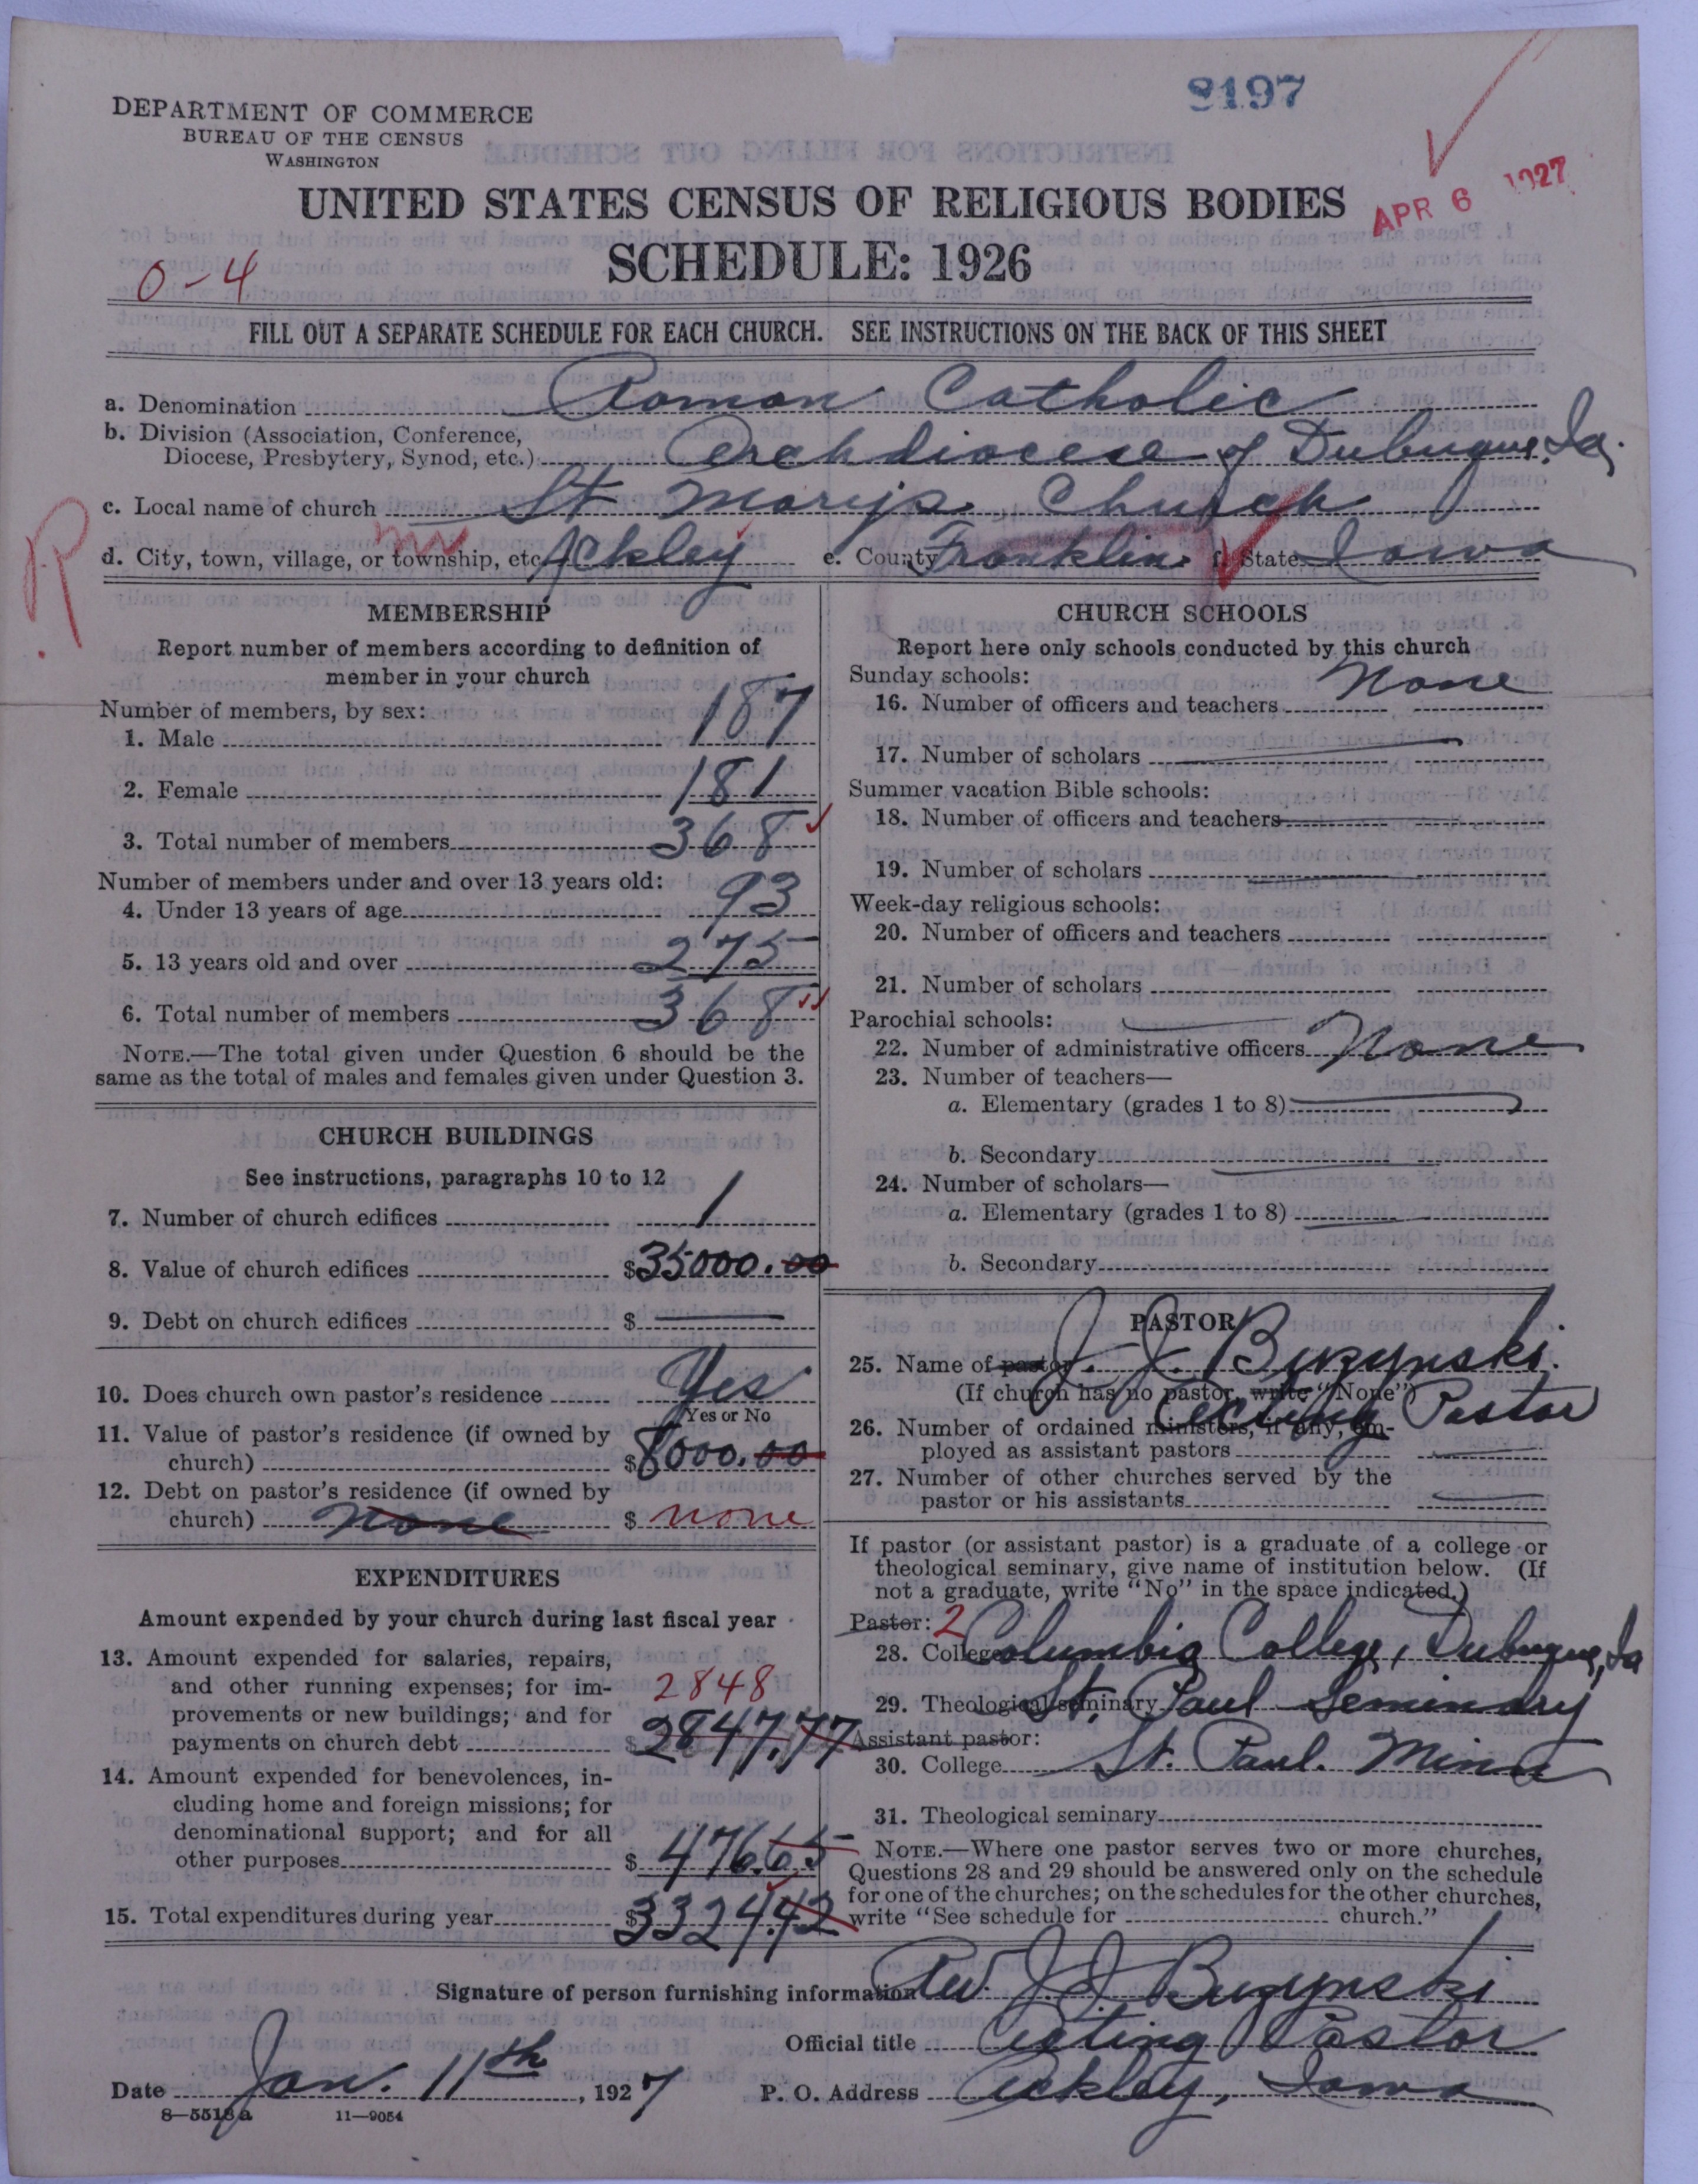 8197
DEPARTMENT OF COMMERCE
BUREAU OF THE CENSUS
WASHINGTON
UNITED STATES CENSUS OF RELIGIOUS BODIES
APR 6 1927
SCHEDULE: 1926
0-4
FILL OUT A SEPARATE SCHEDULE FOR EACH CHURCH. SEE INSTRUCTIONS ON THE BACK OF THIS SHEET
a. Denomination Roman Catholic
b. Division (Association, Conference,
Diocese, Presbytery, Synod, etc.) Archdiocese of Dubuque, Ia.
c. Local name of church St Mary's Church
R
d. City, town, village, or township, etc. Ackley e. County Franklin f. State Iowa
MEMBERSHIP
Report number of members according to definition of
member in your church
Number of members, by sex:
1. Male 187
2. Female 181
3. Total number of members 368
Number of members under and over 13 years old:
4. Under 13 years of age 93
5. 13 years old and over 275
6. Total number of members 368
NOTE.—The total given under Question 6 should be the
same as the total of males and females given under Question 3.
CHURCH BUILDINGS
See instructions, paragraphs 10 to 12
7. Number of church edifices 1
8. Value of church edifices $35000.00
9. Debt on church edifices $
10. Does church own pastor's residence Yes
Yes or No
11. Value of pastor's residence (if owned by
church) $8000.00
12. Debt on pastor's residence (if owned by
church) None $ none
EXPENDITURES
Amount expended by your church during last fiscal year
13. Amount expended for salaries, repairs,
and other running expenses; for im- 2848
provements or new buildings; and for
payments on church debt $2847.77
14. Amount expended for benevolences, in-
cluding home and foreign missions; for
denominational support; and for all
other purposes $476.65
15. Total expenditures during year $3324.42
CHURCH SCHOOLS
Report here only schools conducted by this church
Sunday schools:
16. Number of officers and teachers None
17. Number of scholars
Summer vacation Bible schools:
18. Number of officers and teachers
19. Number of scholars
Week-day religious schools:
20. Number of officers and teachers
21. Number of scholars
Parochial schools:
22. Number of administrative officers None
23. Number of teachers—
a. Elementary (grades 1 to 8)
b. Secondary
24. Number of scholars—
a. Elementary (grades 1 to 8)
b. Secondary
PASTOR
25. Name of pastor J. J. Buzynski.
(If church has no pastor, write "None")
Acting Pastor
26. Number of ordained ministers, if any, em-
ployed as assistant pastors
27. Number of other churches served by the
pastor or his assistants
If pastor (or assistant pastor) is a graduate of a college or
theological seminary, give name of institution below. (If
not a graduate, write "No" in the space indicated.)
Pastor: 2
28. College Columbia College, Dubuque, Ia
29. Theological seminary St. Paul Seminary
Assistant pastor:
30. College St. Paul. Minn
31. Theological seminary
NOTE.—Where one pastor serves two or more churches,
Questions 28 and 29 should be answered only on the schedule
for one of the churches; on the schedules for the other churches,
write "See schedule for church."
Signature of person furnishing information Rev. J. J. Buzynski
Official title Acting Pastor
Date Jan. 11th, 1927 P. O. Address Ackley, Iowa
8—5518a 11—9054